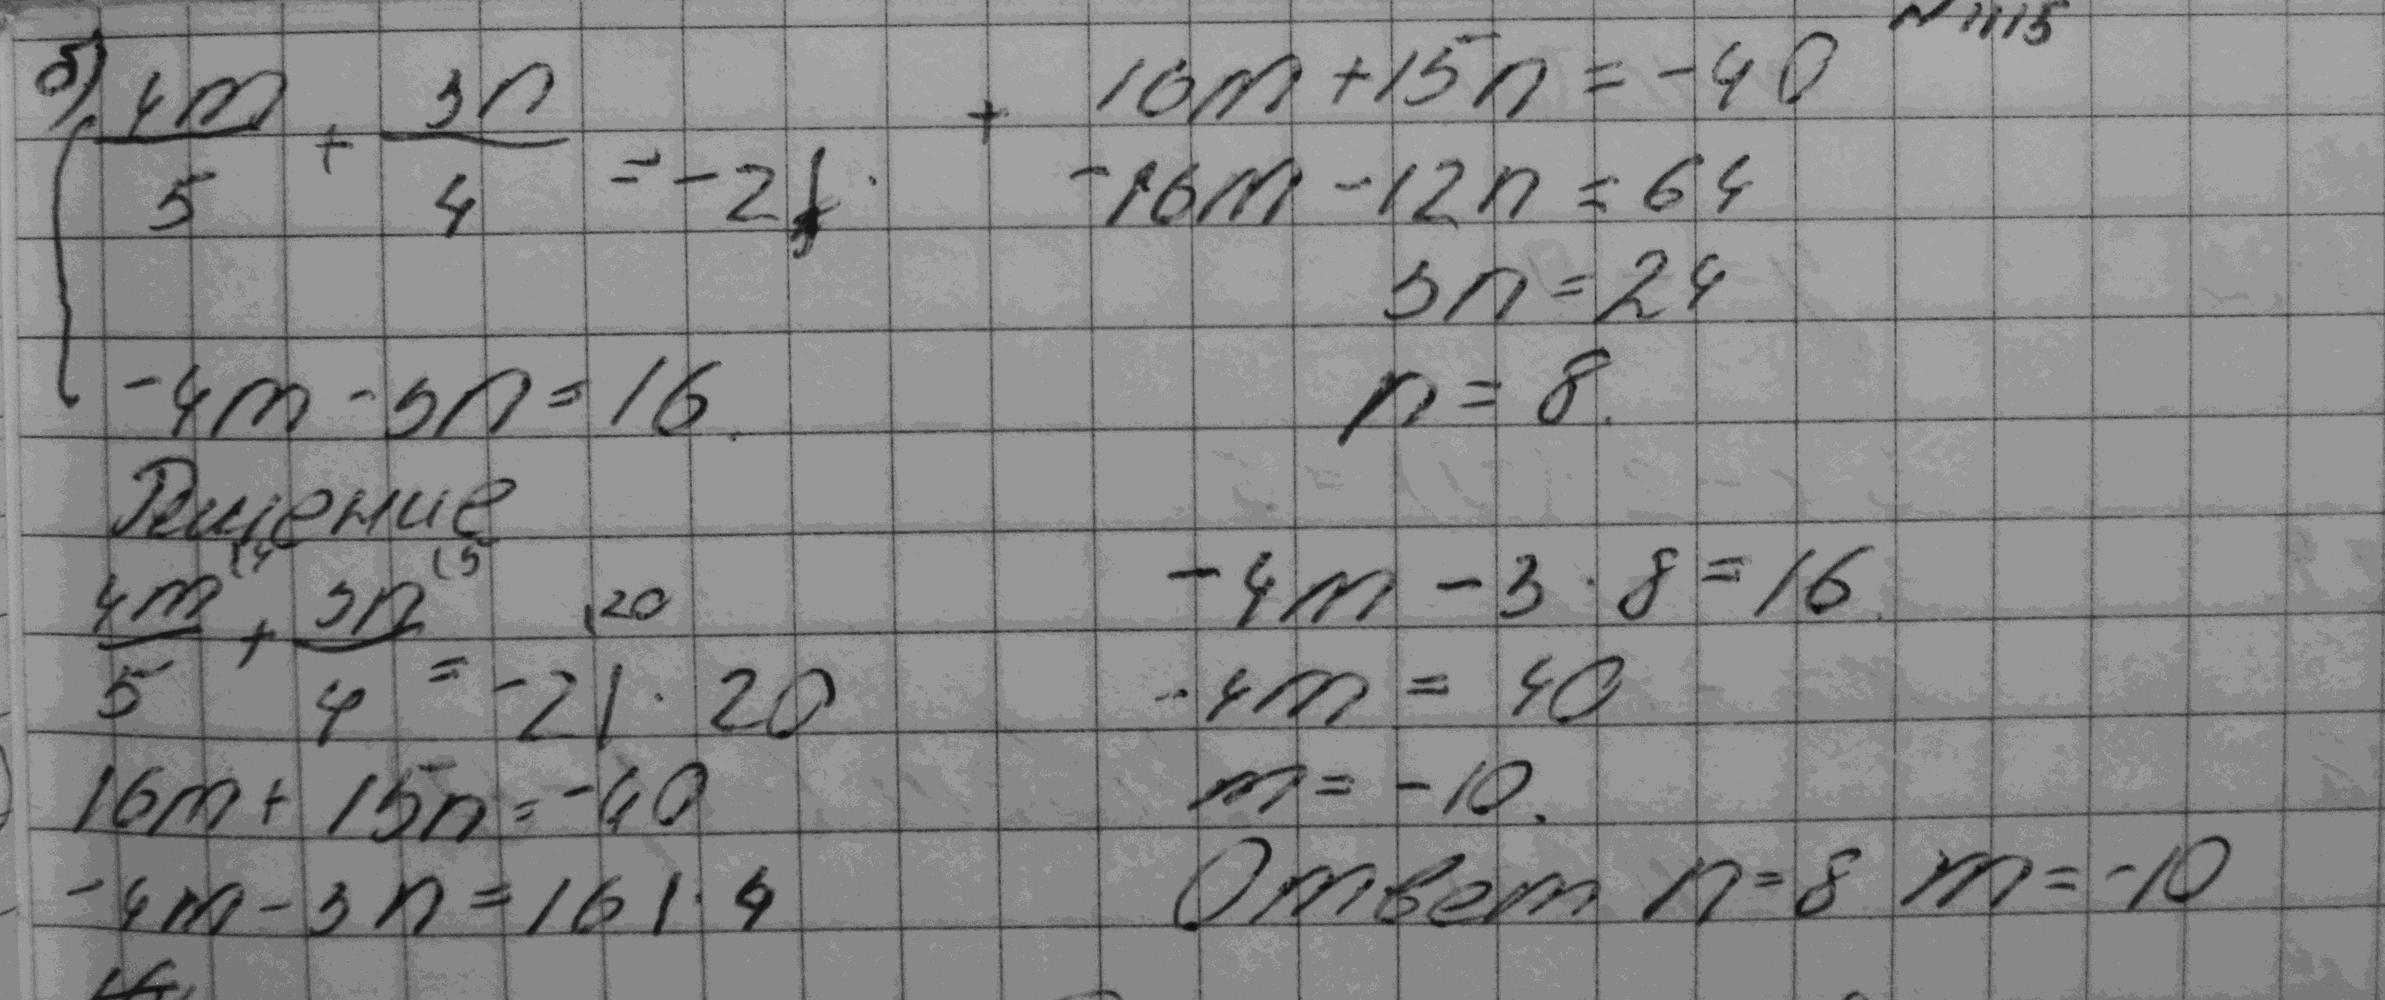 б) 4m/5 + 3n/4 = -2
-4m - 3n = 16.
Решение
4m/5 (4 + 3n/4 (5 = -2 | · 20 ,20
16m + 15n = -40
-4m - 3n = 16 | · 4
N 1115
+ 16m + 15n = -40
-16m - 12n = 64
3n = 24
n = 8.
-4m - 3 · 8 = 16.
-4m = 40
m = -10.
Ответ n = 8 m = -10